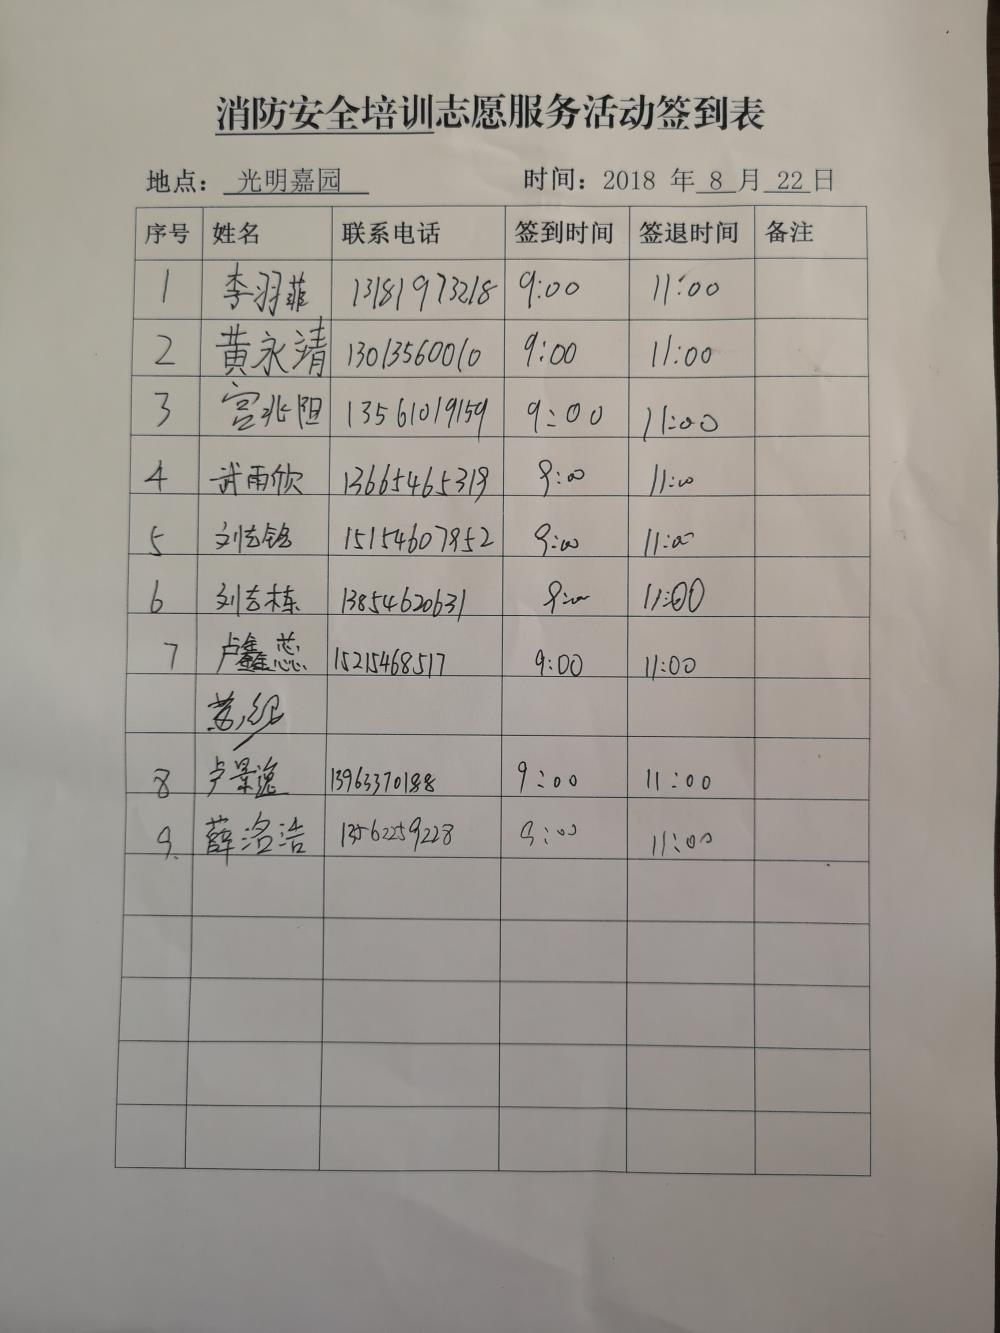 消防安全培训志愿服务活动签到表
地点：光明嘉园 时间：2018 年 8 月 22 日
序号 姓名 联系电话 签到时间 签退时间 备注
1 李羽菲 13181973218 9:00 11:00
2 黄永靖 13013560010 9:00 11:00
3 宫兆阳 13561019159 9:00 11:00
4 武雨欣 13665465319 9:00 11:00
5 刘志铭 15154607852 9:00 11:00
6 刘志栋 13854620631 9:00 11:00
7 卢鑫蕊 15215468517 9:00 11:00
8 卢景逸 13963370188 9:00 11:00
9. 薛洛浩 13562259228 9:00 11:00